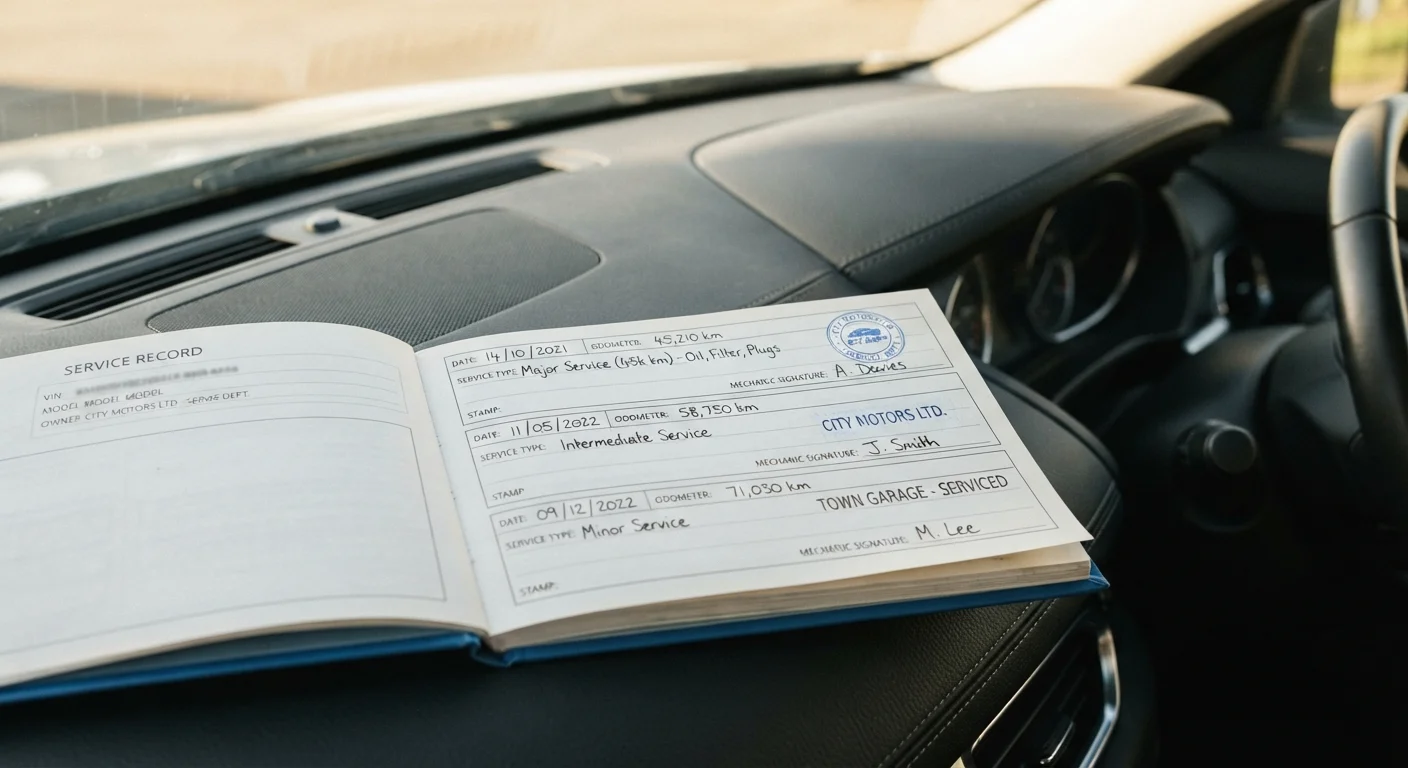 SERVICE RECORD
VIN
MODEL MODEL MODEL
OWNER CITY MOTORS LTD DEPT.
DATE: 14/10/2021 ODOMETER: 45,210 km
SERVICE TYPE Major Service (45k km) - Oil, Filter, Plugs
MECHANIC SIGNATURE: A. Davies
STAMP:
DATE: 11/05/2022 ODOMETER: 58,750 km
SERVICE TYPE: Intermediate Service
CITY MOTORS LTD.
MECHANIC SIGNATURE: J. Smith
STAMP
DATE: 09/12/2022 ODOMETER: 71,030 km
SERVICE TYPE: Minor Service
TOWN GARAGE - SERVICED
MECHANIC SIGNATURE: M. Lee
STAMP: